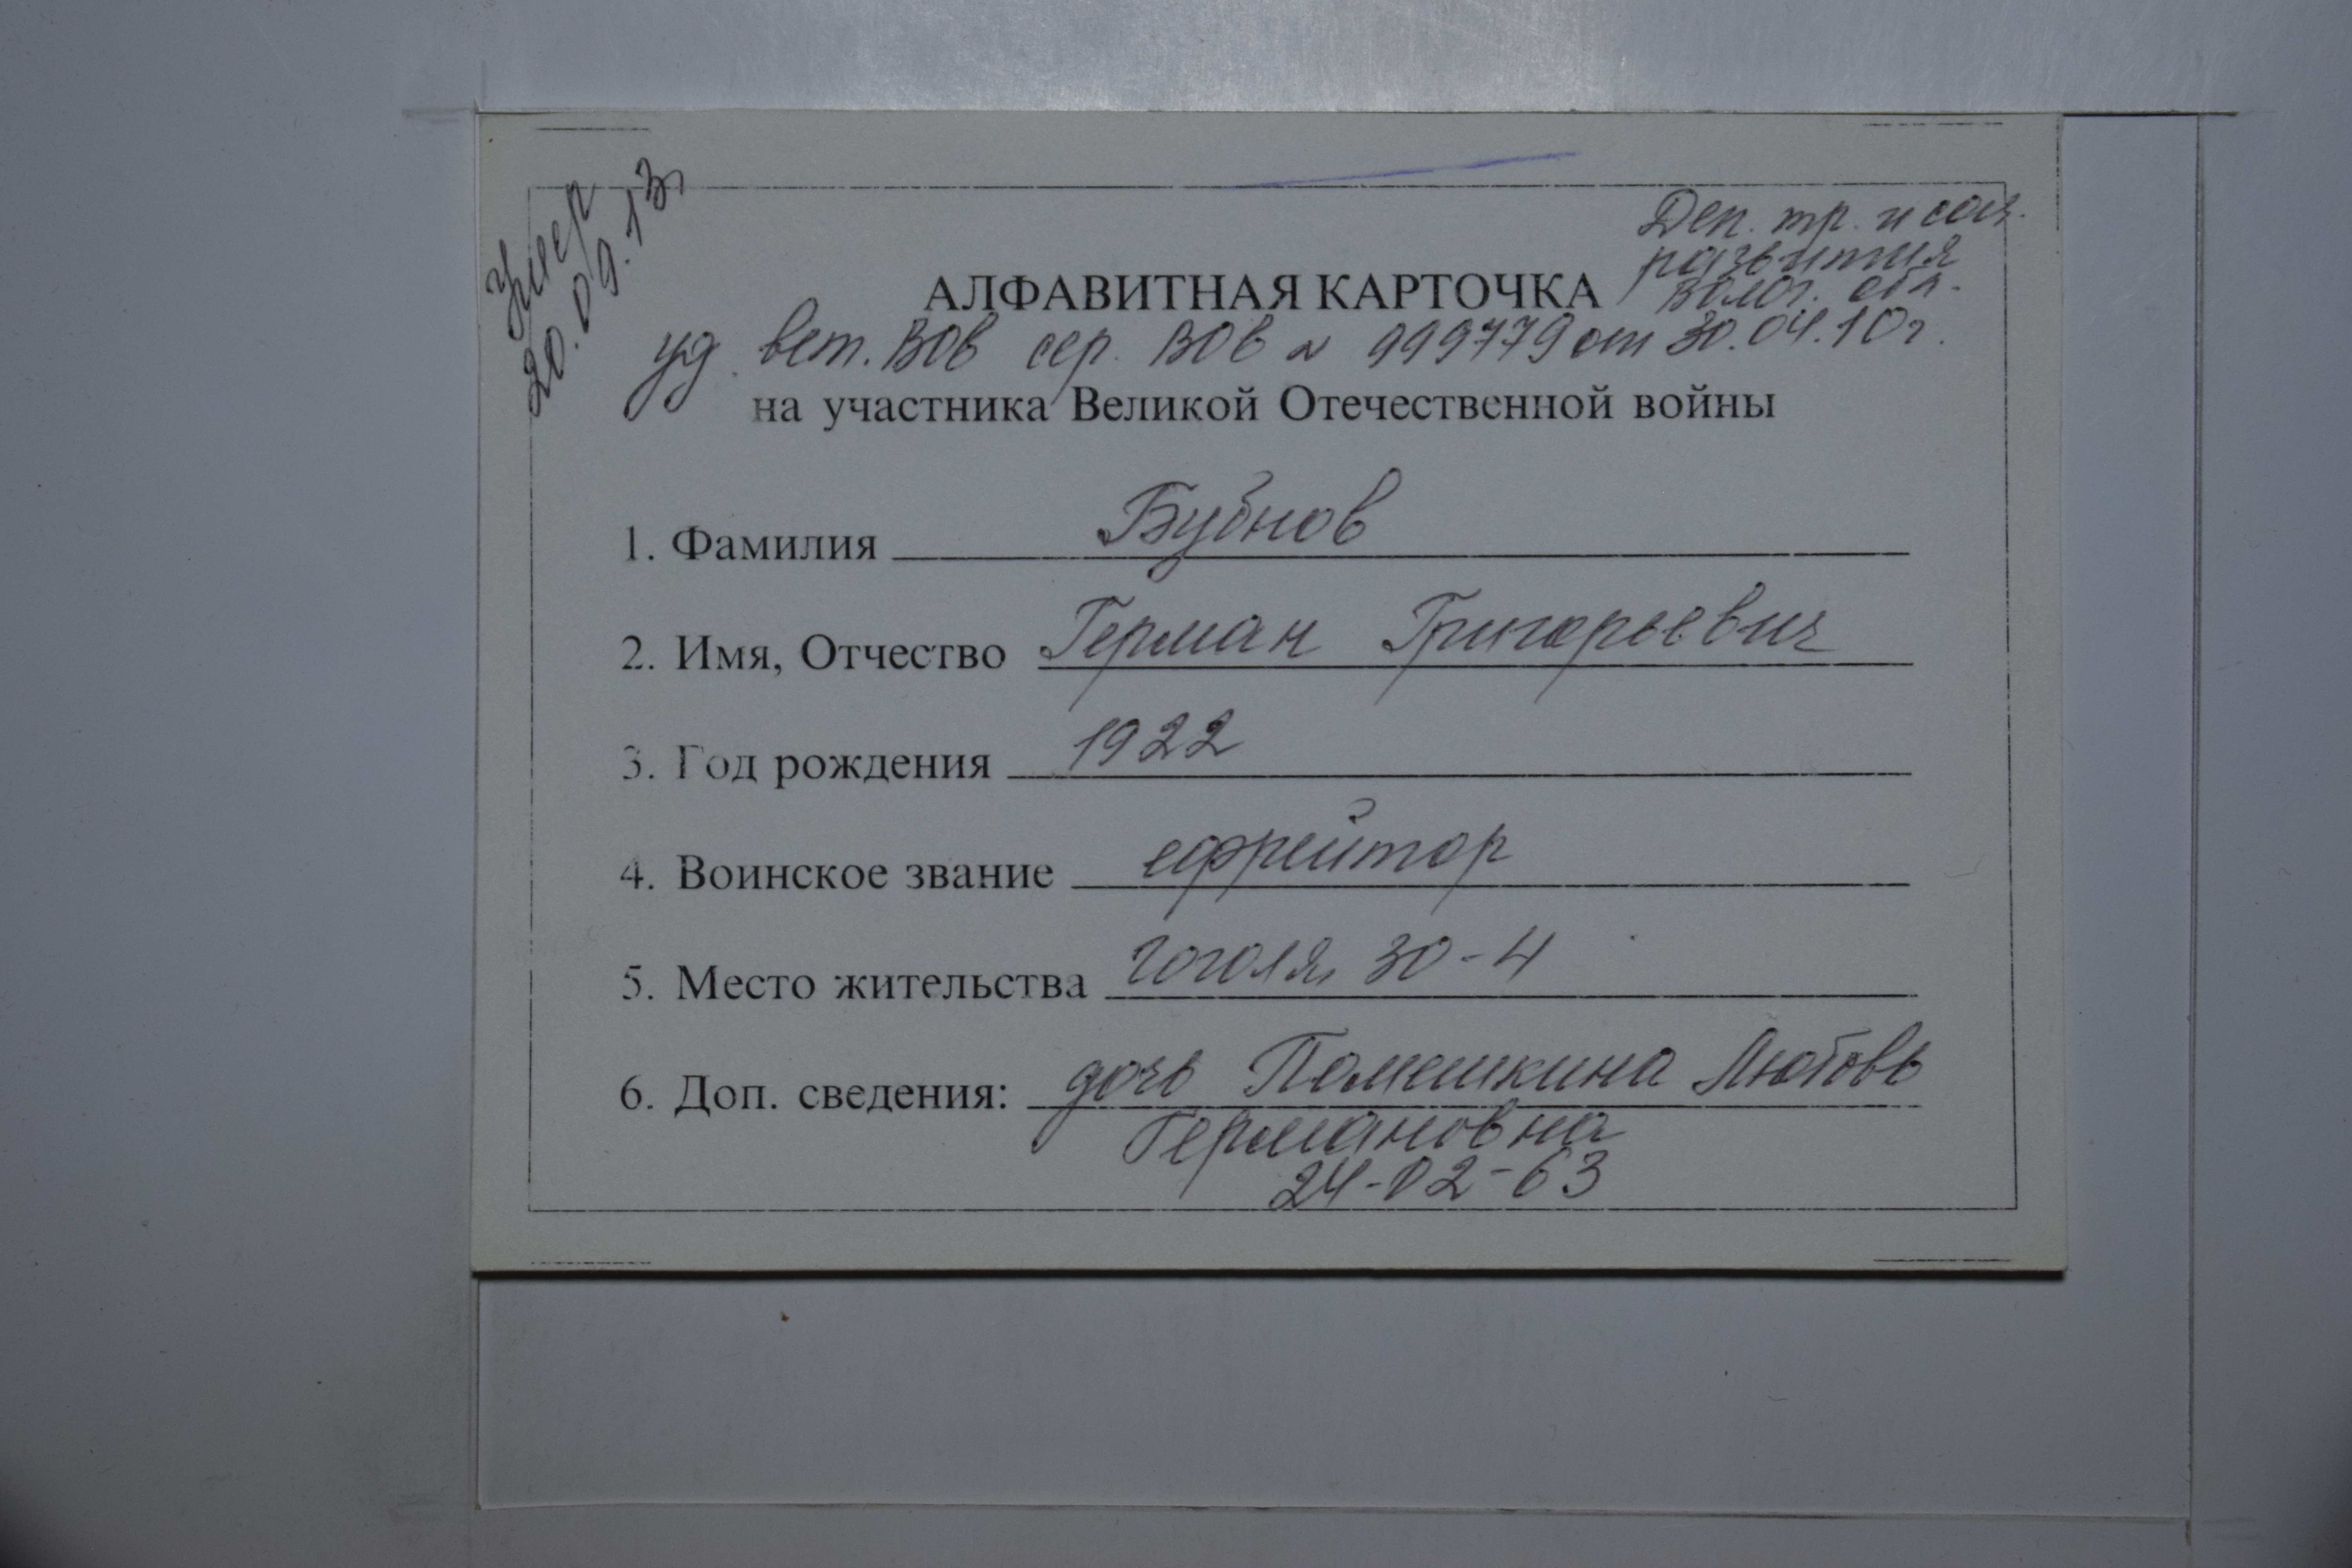 Умер
20.09.13г
Деп. тр. и соц.
развития
Волог. обл.
АЛФАВИТНАЯ КАРТОЧКА
уд. вет. ВОВ сер. ВОВ № 999779 от 30.04.10г.
на участника Великой Отечественной войны
1. Фамилия Бубнов
2. Имя, Отчество Герман Григорьевич
3. Год рождения 1922
4. Воинское звание ефрейтор
5. Место жительства Гоголя, 30-4
6. Доп. сведения: дочь Помешкина Любовь
Германовна
24-02-63